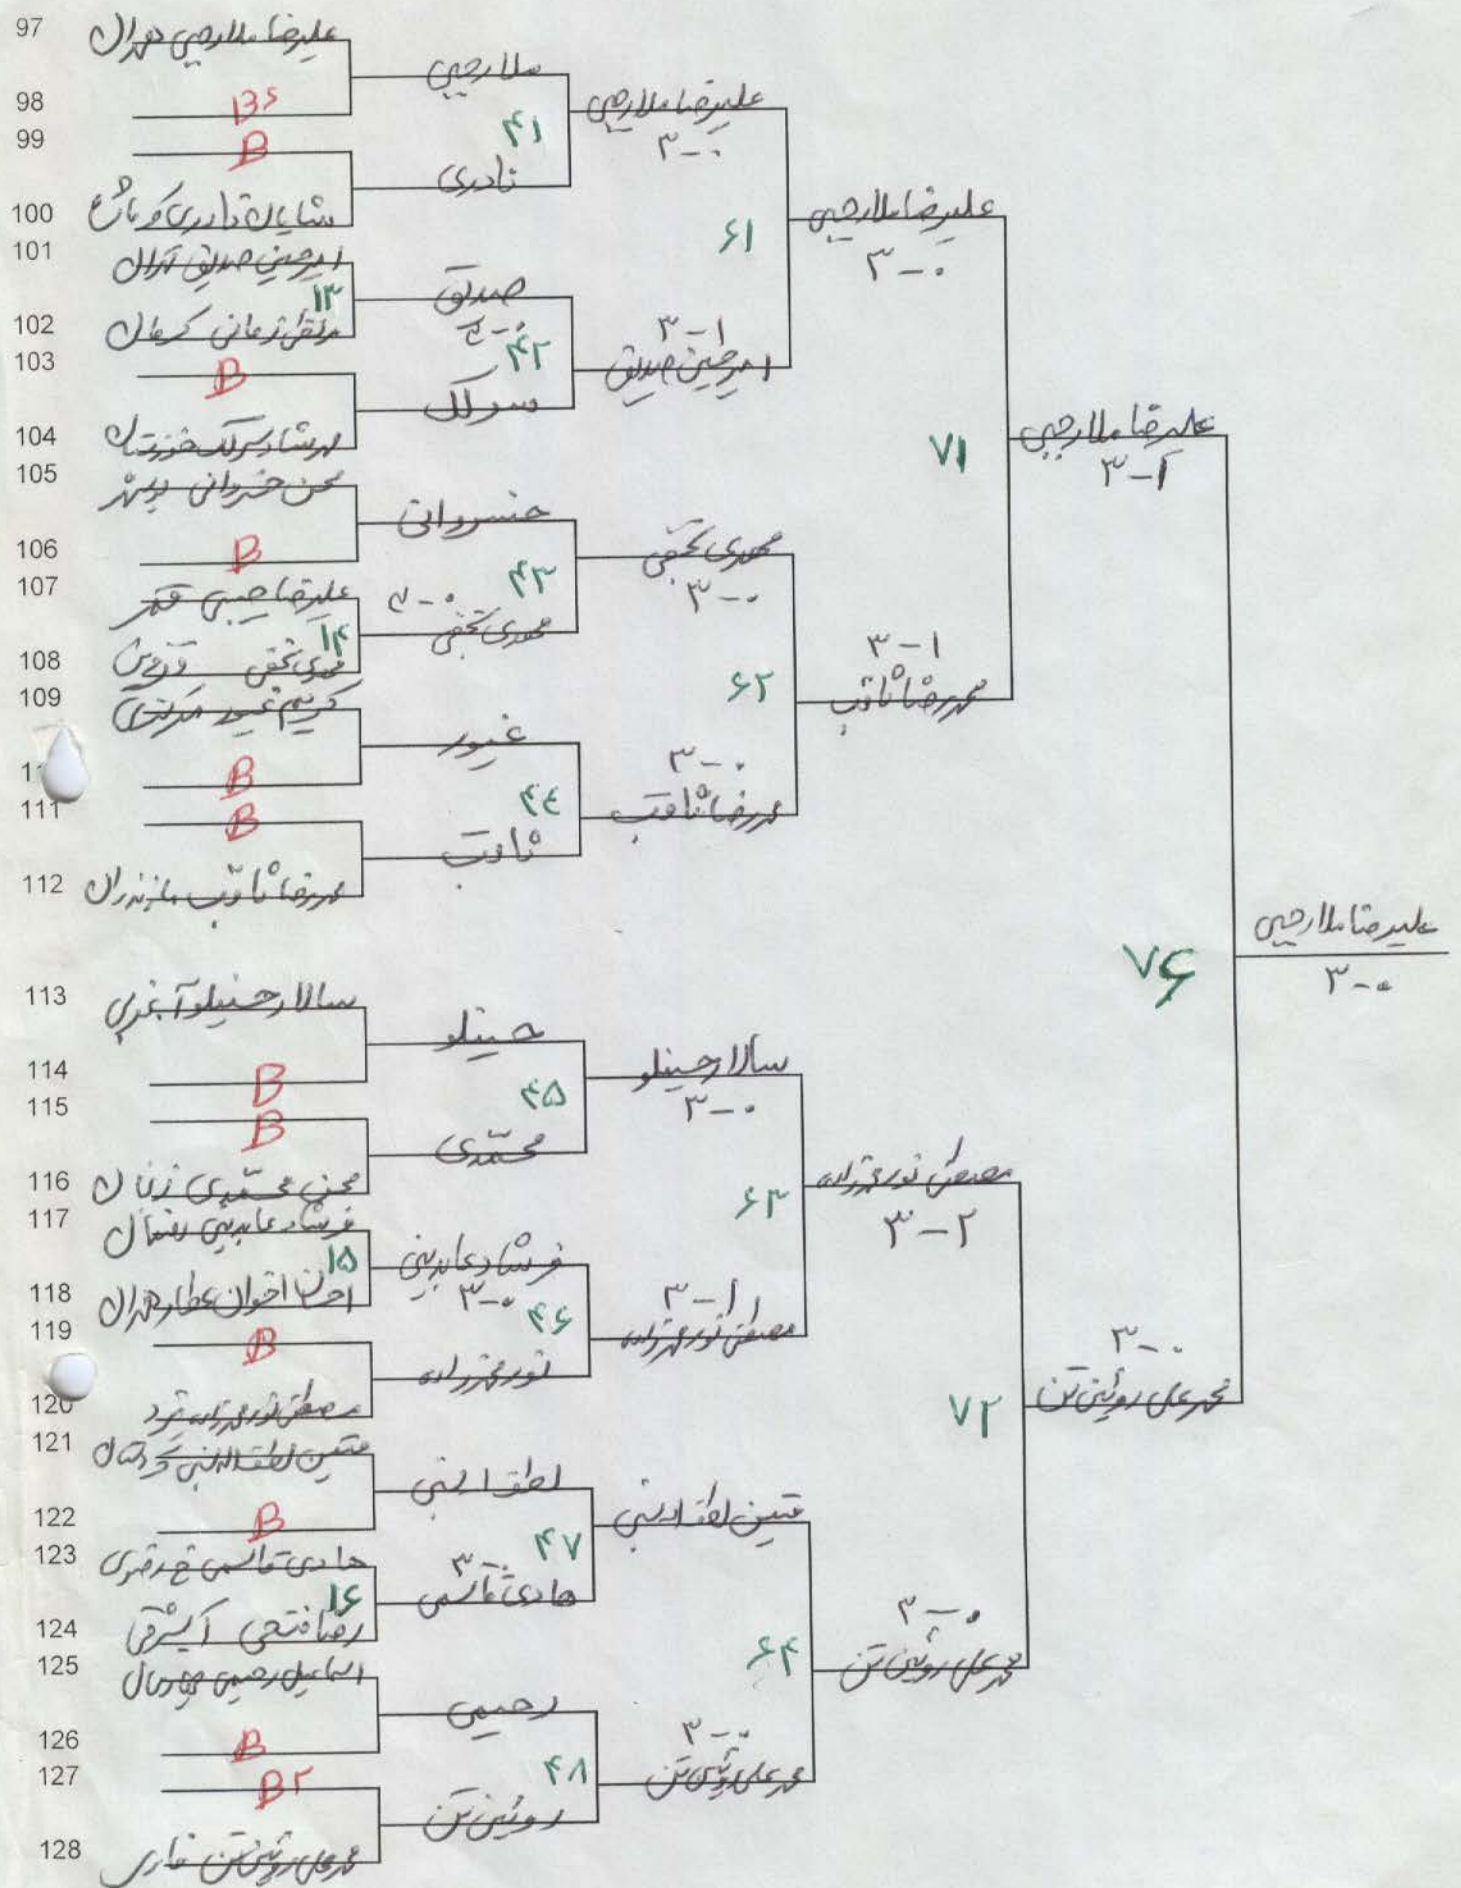 97 علیرضا ملارجبی همدان
98 B
99 B
100 شایان نادری
101 امیرحسین صدیق
102 زمانی کرمان
103 B
104 مهرشاد سرلک خوزستان
105 محسن خسروانی بوشهر
106 B
107 علیرضا حبیبی
108 مهدی قزوین
109 کریم غیور مرکزی
B
111 B
112 محمدرضا ثاقب مازندران
113 سالار حسینلو آ غربی
114 B
115 B
116 محمدی زنجان
117 فرشاد عابدینی
118 احسان اخوان عطار همدان
119 B
120 مصطفی
121 متین
122 B
123 هادی قاسمی خ رضوی
124 رضا فتحی آ شرقی
125 اسماعیل رحیمی
126 B
127 B۲
128 محمدعلی روئین تن فارس
۱۳
۱۴
۱۵
۱۶
ملارجبی
۴۱
نادری
صدیق
۴۲
سرلک
خسروانی
۴۳
۳-۰
مهدی
غیور
۴۴
ثاقب
حسینلو
۴۵
محمدی
فرشاد عابدینی
۳-۰
۴۶
۴۷
هادی قاسمی
رحیمی
۴۸
روئین تن
علیرضا ملارجبی
۳-۰
۶۱
۳-۱
امیرحسین صدیق
مهدی
۳-۰
۶۲
۳-۰
محمدرضا ثاقب
سالار حسینلو
۳-۰
۶۳
۳-۱
مصطفی
متین
۶۴
۳-۰
محمدعلی روئین تن
علیرضا ملارجبی
۳-۰
۷۱
۳-۱
محمدرضا ثاقب
مصطفی
۳-۲
۷۲
۳-۰
محمدعلی روئین تن
علیرضا ملارجبی
۷۶
۳-۰
محمدعلی روئین تن
علیرضا ملارجبی
۳-۰